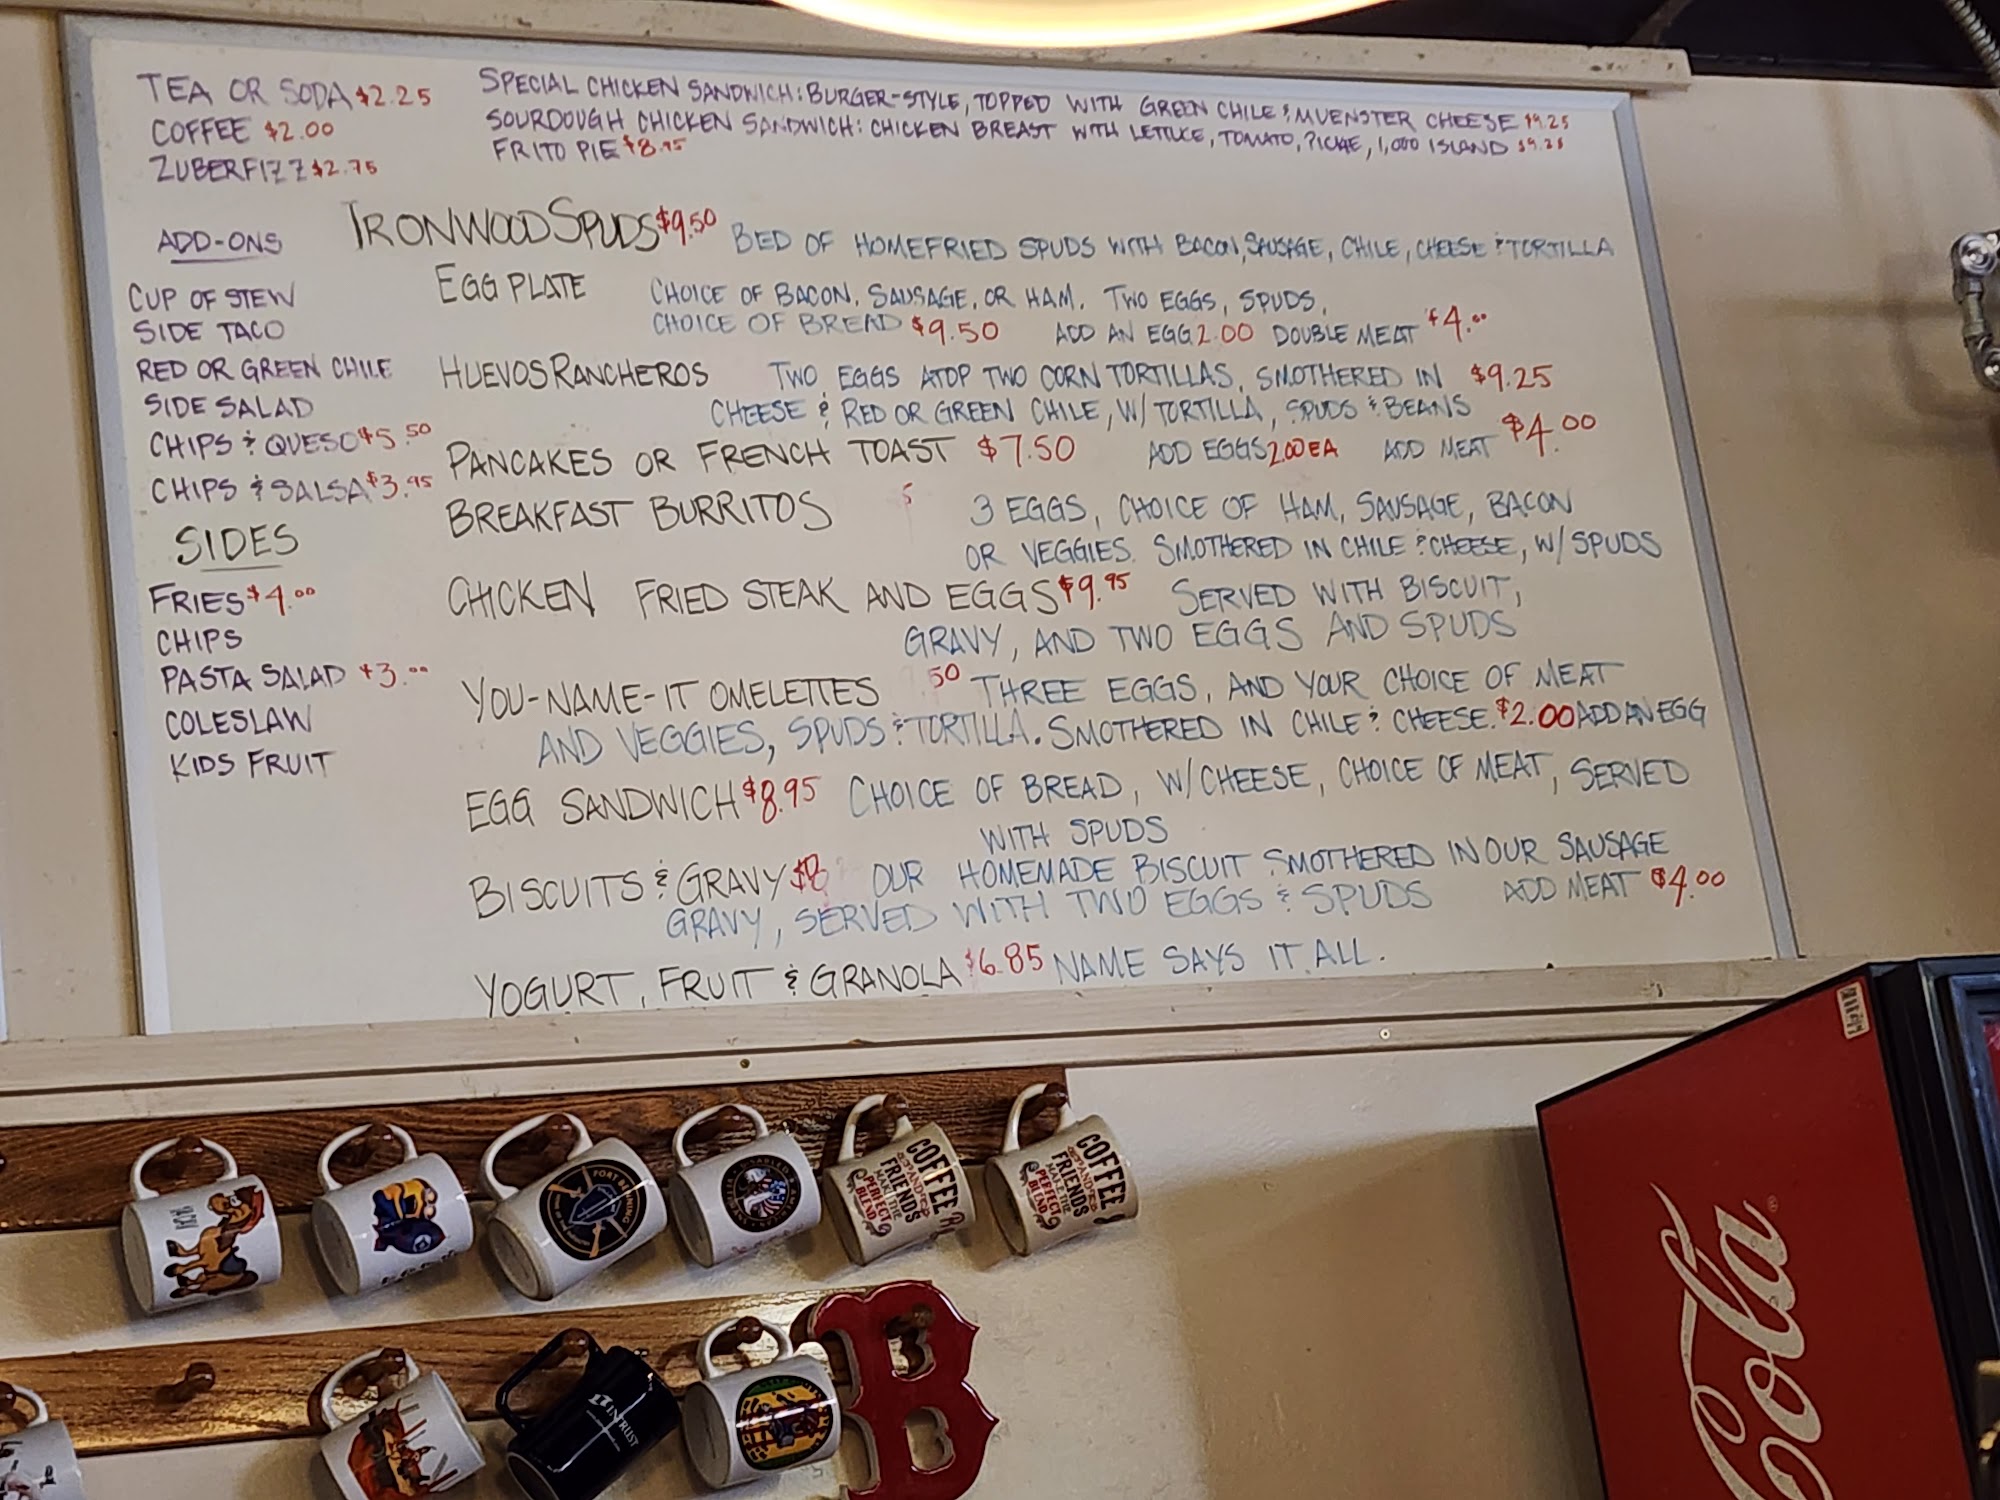 TEA OR SODA $2.25
COFFEE $2.00
ZUBERFIZZ $2.75
SPECIAL CHICKEN SANDWICH: BURGER-STYLE, TOPPED WITH GREEN CHILE & MUENSTER CHEESE $9.25
SOURDOUGH CHICKEN SANDWICH: CHICKEN BREAST WITH LETTUCE, TOMATO, PICKLE, 1,000 ISLAND $9.25
FRITO PIE $8.95
ADD-ONS
CUP OF STEW
SIDE TACO
RED OR GREEN CHILE
SIDE SALAD
CHIPS & QUESO $5.50
CHIPS & SALSA $3.95
SIDES
FRIES $4.00
CHIPS
PASTA SALAD $3.00
COLESLAW
KIDS FRUIT
IRONWOOD SPUDS $9.50 BED OF HOMEFRIED SPUDS WITH BACON, SAUSAGE, CHILE, CHEESE & TORTILLA
EGG PLATE CHOICE OF BACON, SAUSAGE, OR HAM. TWO EGGS, SPUDS,
CHOICE OF BREAD $9.50 ADD AN EGG 2.00 DOUBLE MEAT $4.00
HUEVOS RANCHEROS TWO EGGS ATOP TWO CORN TORTILLAS, SMOTHERED IN $9.25
CHEESE & RED OR GREEN CHILE, W/ TORTILLA, SPUDS & BEANS
PANCAKES OR FRENCH TOAST $7.50 ADD EGGS 2.00 EA ADD MEAT $4.00
BREAKFAST BURRITOS 3 EGGS, CHOICE OF HAM, SAUSAGE, BACON
OR VEGGIES. SMOTHERED IN CHILE & CHEESE, W/ SPUDS
CHICKEN FRIED STEAK AND EGGS $9.95 SERVED WITH BISCUIT,
GRAVY, AND TWO EGGS AND SPUDS
YOU-NAME-IT OMELETTES .50 THREE EGGS, AND YOUR CHOICE OF MEAT
AND VEGGIES, SPUDS & TORTILLA. SMOTHERED IN CHILE & CHEESE. $2.00 ADD AN EGG
EGG SANDWICH $8.95 CHOICE OF BREAD, W/ CHEESE, CHOICE OF MEAT, SERVED
WITH SPUDS
BISCUITS & GRAVY $8 OUR HOMEMADE BISCUIT SMOTHERED IN OUR SAUSAGE
GRAVY, SERVED WITH TWO EGGS & SPUDS ADD MEAT $4.00
YOGURT, FRUIT & GRANOLA $6.85 NAME SAYS IT ALL.
FORT BENNING
COFFEE
AND
FRIENDS
MAKE THE
PERFECT
BLEND
COFFEE
AND
FRIENDS
MAKE THE
PERFECT
BLEND
INTRUST
B
Cola